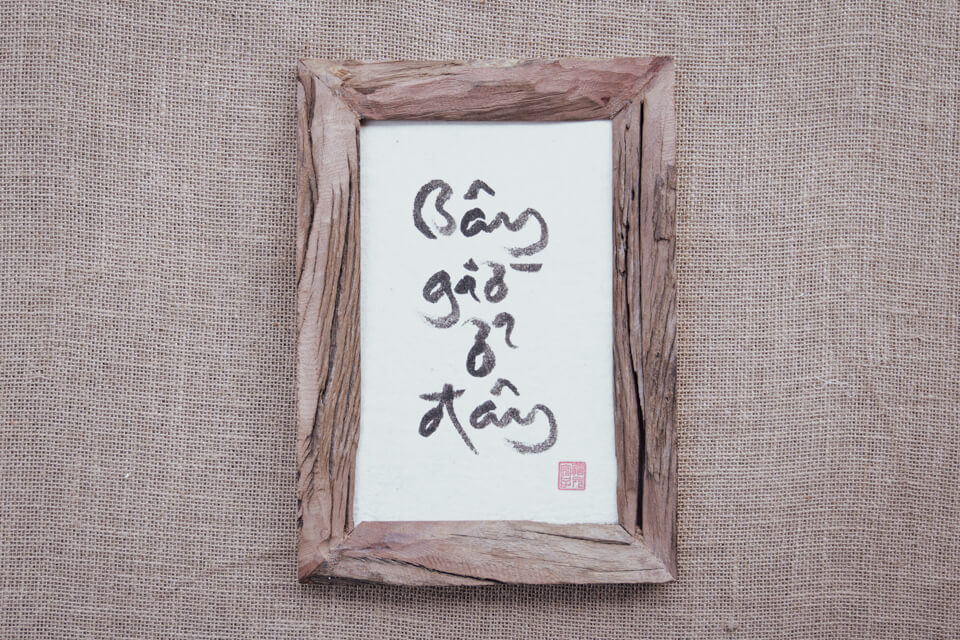 Bây
giờ
ở
đây